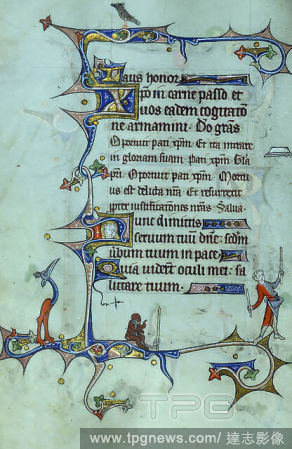 Laus honor
xp̄o in carne passo et
uos eadem cogitatō
ne armamini. Do grās
Oportuit pati xp̄m. Et ita intrare
in gloriam suam. Pati xp̄m. Gl̄a
p̄ri. Oportuit pati xp̄m. Mortu
us est delicta nr̄a. Et resurrexit
ipter iustificationes nr̄as. Salua
Nunc dimittis
seruum tuū dn̄e: scdm̄
uerbum tuum in pace
Quia uiderūt oculi mei: sa
lutare tuum.
TPG
www.tpgnews.com/ 達志影像